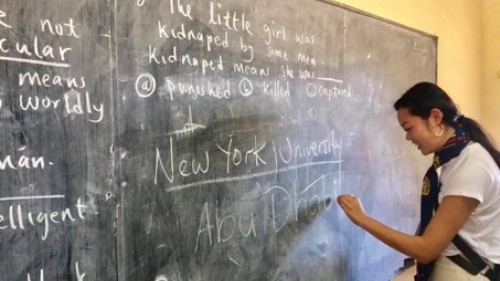 not
cular
means
worldly
mán.
elligent
The little girl was
kidnaped by some men.
kidnaped means she was
ⓐ punished ⓑ killed ⓒ captured
New York University
Abu Dha